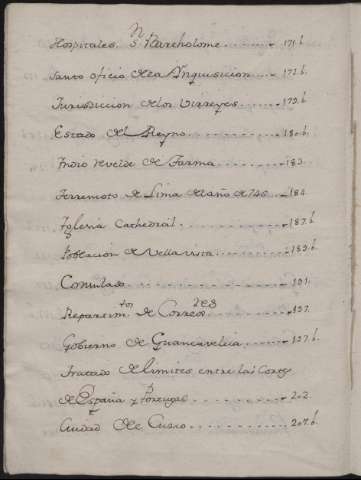 Hospitales. S. Bartholome. ........ 171.b.
Santo oficio de la Ynquisicion ..... 172.b.
Jurisdiccion de los Virreyes ..... 179.b.
Estado del Reyno. ........ 180.b.
Yndio revelde de Tarma ........ 183.
Terremoto de Lima del año de 746 .. 184.
Yglesia Cathedral. ........ 187.b.
Poblacion de Vellavista. ........ 189.b.
Consulado ........ 191.
Repartim.tos de Corre.s ........ 197.
Gobierno de Guancavelica ........ 197.b.
Tratado de limites entre las Cortes
de España y Portugal ........ 202.
Ciudad de Cusco ........ 207.b.